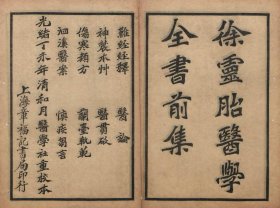 徐靈胎醫學
全書前集
難經經釋　醫論
神農本艸　醫貫砭
傷寒類方　蘭臺軌範
洄溪醫案　慎疾芻言
光緒丁未年清和月醫學社重校本
上海章福記書局印行